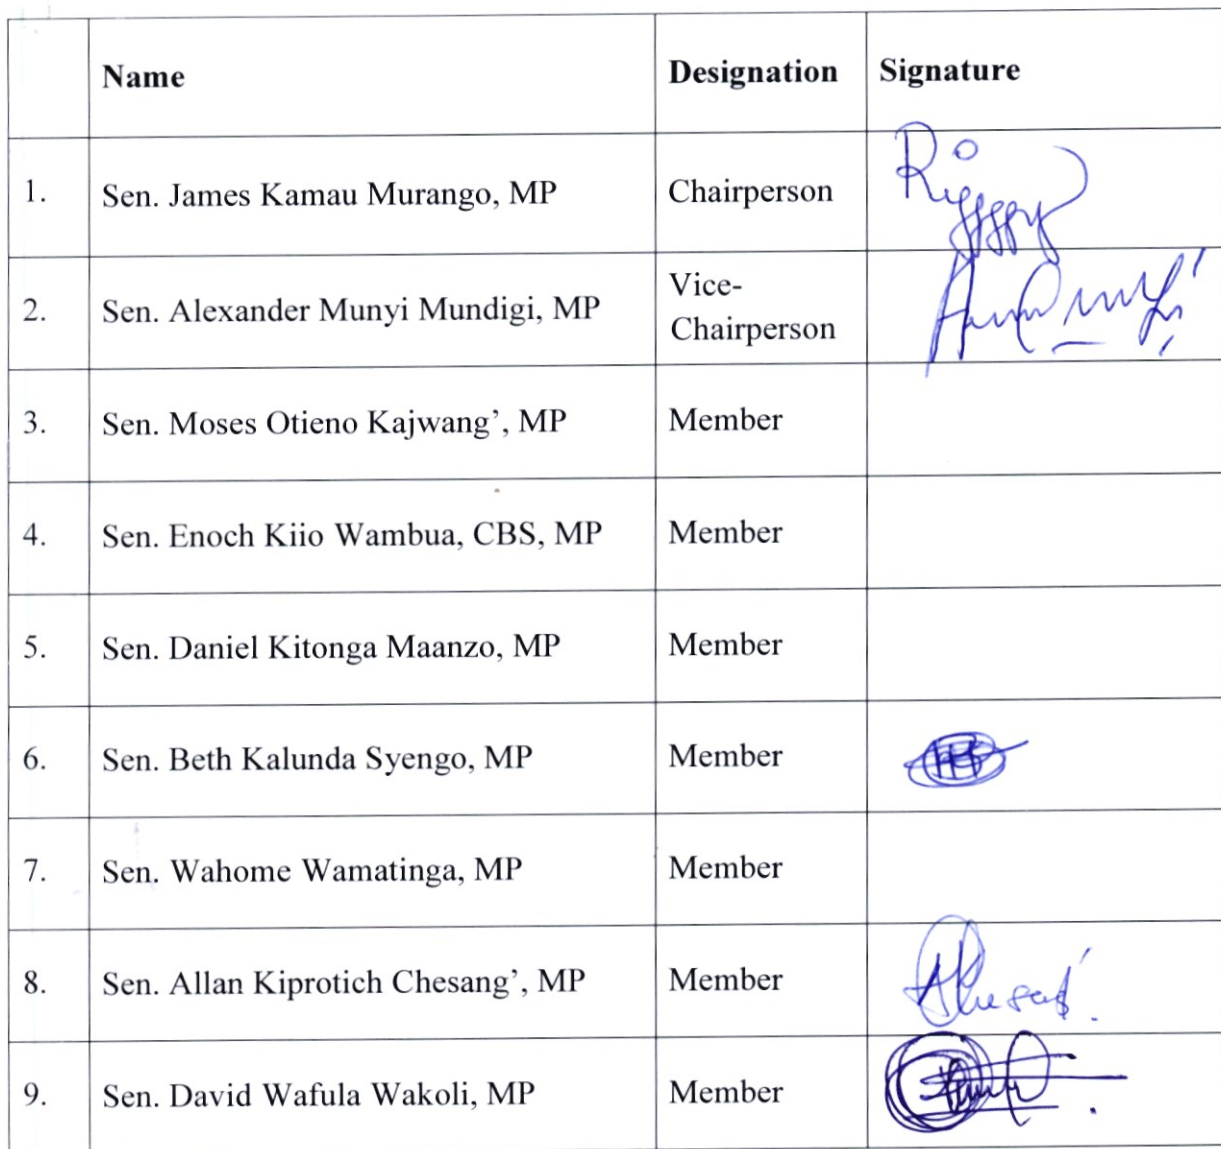 Name Designation Signature
1. Sen. James Kamau Murango, MP Chairperson
2. Sen. Alexander Munyi Mundigi, MP Vice-
Chairperson
3. Sen. Moses Otieno Kajwang’, MP Member
4. Sen. Enoch Kiio Wambua, CBS, MP Member
5. Sen. Daniel Kitonga Maanzo, MP Member
6. Sen. Beth Kalunda Syengo, MP Member
7. Sen. Wahome Wamatinga, MP Member
8. Sen. Allan Kiprotich Chesang’, MP Member
9. Sen. David Wafula Wakoli, MP Member